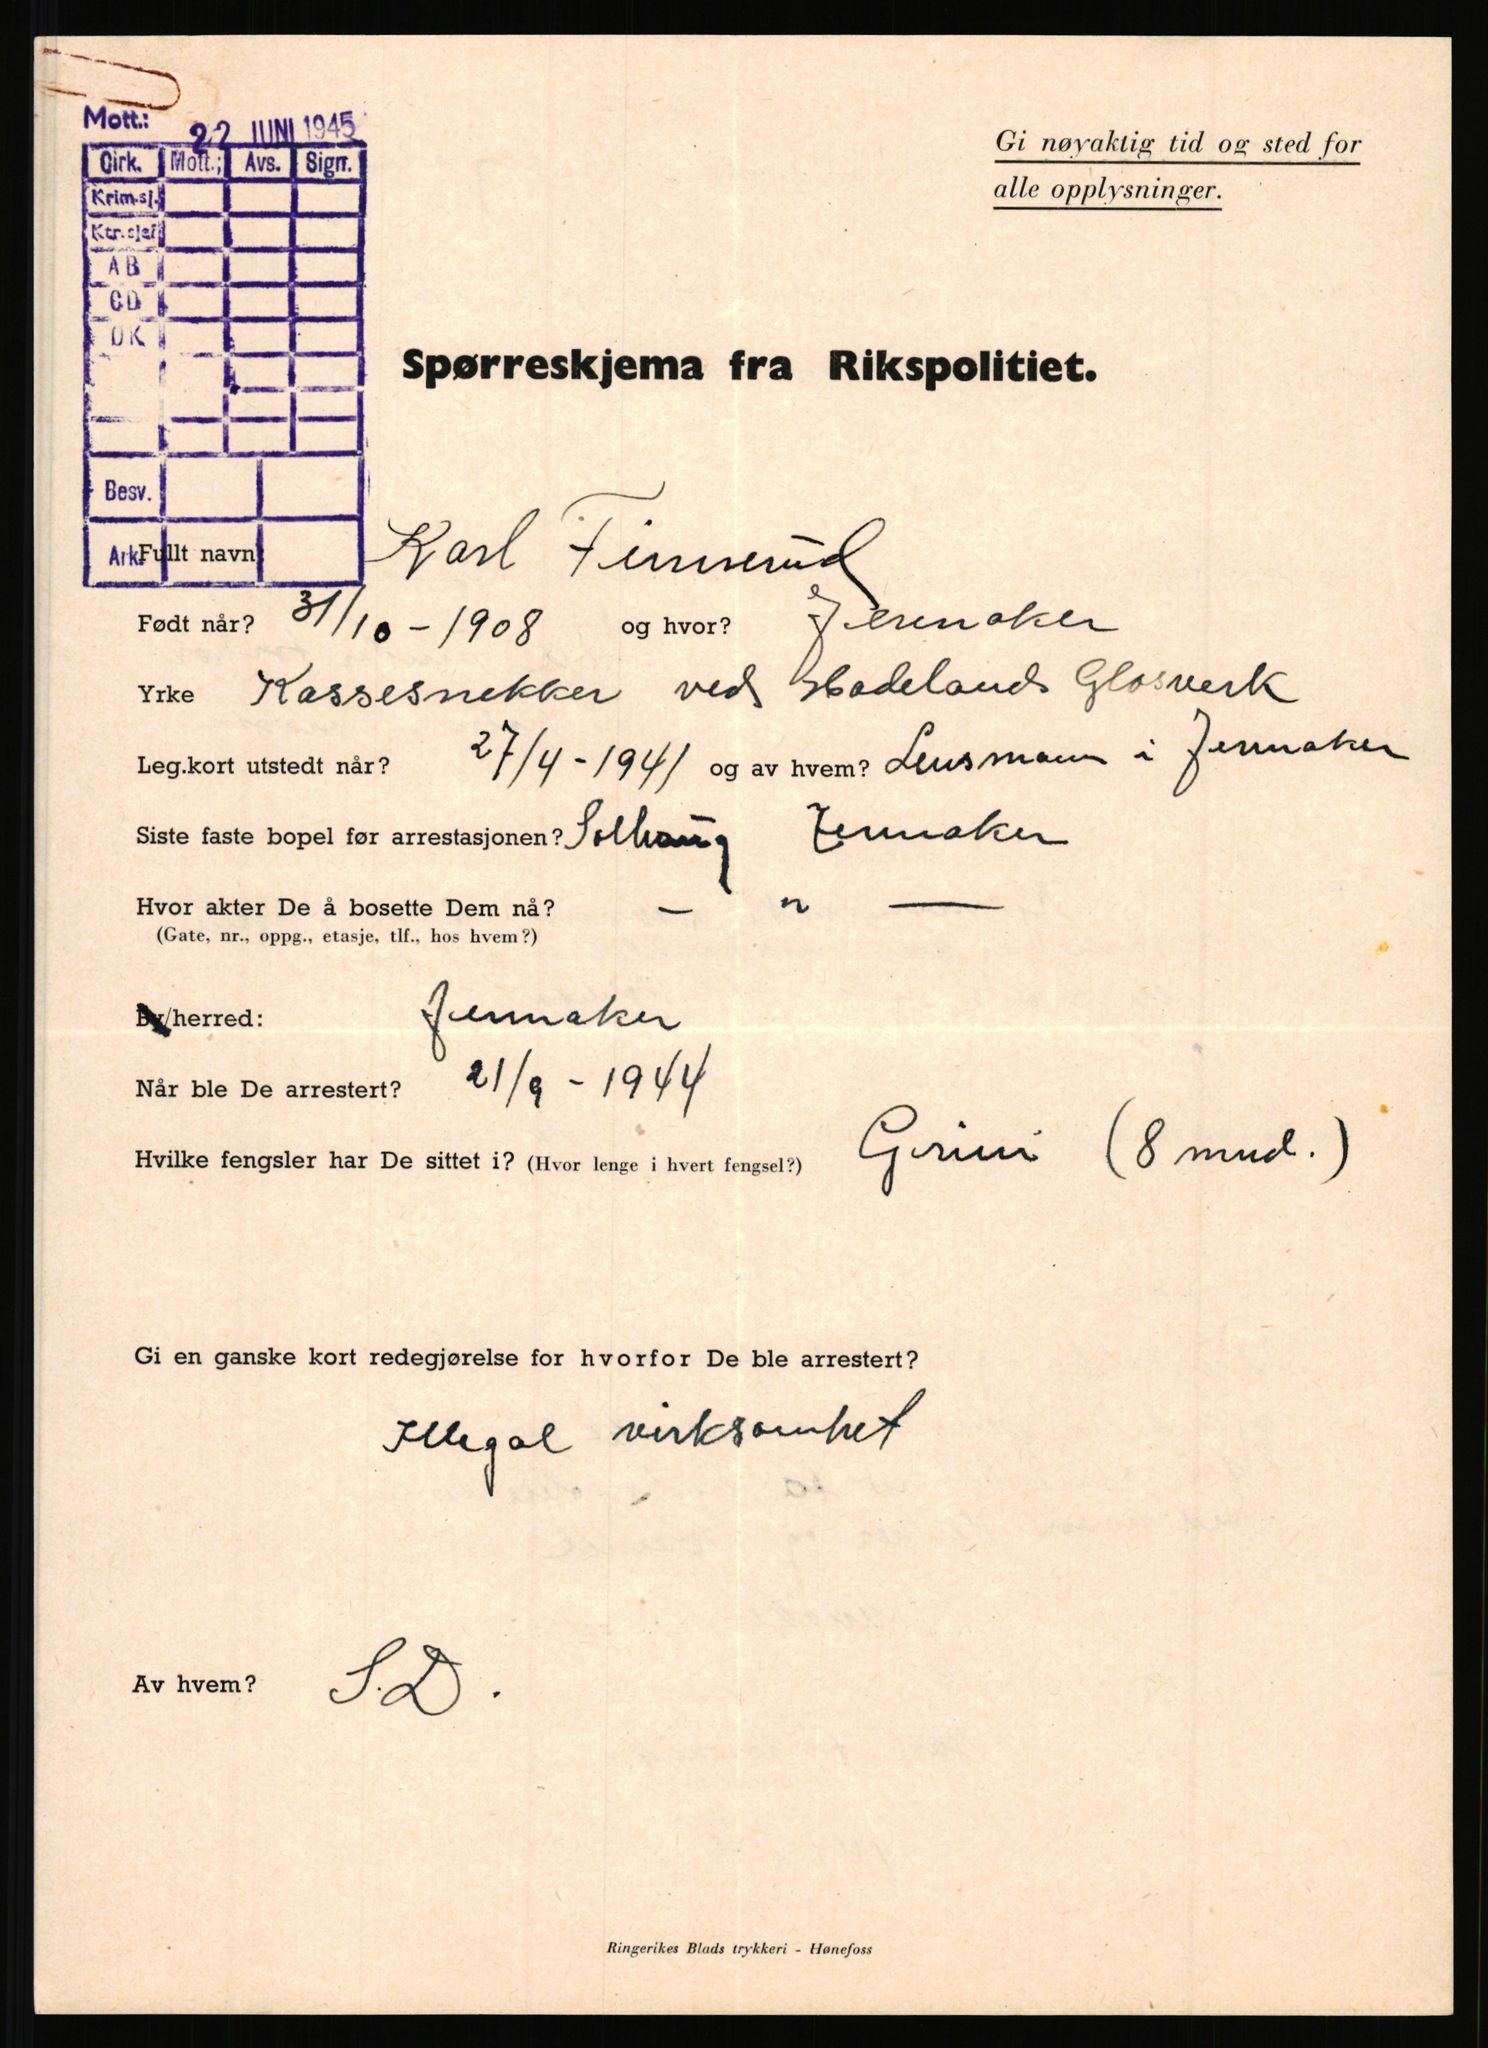 Mott.: 22 JUNI 1945
Cirk. Mott.; Avs. Sign.
Krim.sj.
Ktr.sjef
AB
CD
DK
Besv.
Ark.
Gi nøyaktig tid og sted for
alle opplysninger.
Spørreskjema fra Rikspolitiet.
Fullt navn Karl Finnerud
Født når? 31/10 - 1908 og hvor? Jevnaker
Yrke Kassesnekker ved Hadelands Glasverk
Leg.kort utstedt når? 27/4 - 1941 og av hvem? Lensmann i Jevnaker
Siste faste bopel før arrestasjonen? Solhaug Jevnaker
Hvor akter De å bosette Dem nå? — " —
(Gate, nr., oppg., etasje, tlf., hos hvem?)
By/herred: Jevnaker
Når ble De arrestert? 21/9 - 1944
Hvilke fengsler har De sittet i? (Hvor lenge i hvert fengsel?) Grini (8 mnd.)
Gi en ganske kort redegjørelse for hvorfor De ble arrestert?
Illegal virksomhet
Av hvem? S.D.
Ringerikes Blads trykkeri - Hønefoss